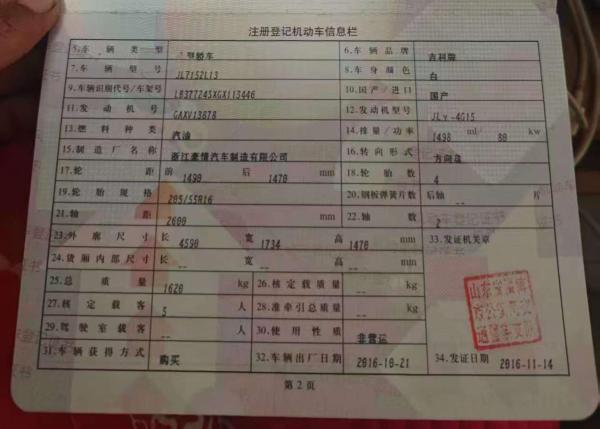 注册登记机动车信息栏
5.车辆类型 型轿车 6.车辆品牌 吉利牌
7.车辆型号 JL7152L13 8.车身颜色 白
9.车辆识别代号/车架号 LB37724SXGX113446 10.国产/进口 国产
11.发动机号 GAXV13878 12.发动机型号 JLγ-4G15
13.燃料种类 汽油 14.排量/功率 1498 ml/ 80 kw
15.制造厂名称 浙江豪情汽车制造有限公司 16.转向形式 方向盘
17.轮距 前 1490 后 1470 mm 18.轮胎数 4
19.轮胎规格 205/55R16 20.钢板弹簧片数 后轴 -- 片
21.轴距 2600 mm 22.轴数 2
23.外廓尺寸 长 4590 宽 1734 高 1470 mm 33.发证机关章
24.货厢内部尺寸 长 -- 宽 -- 高 -- mm
25.总质量 1620 kg 26.核定载质量 -- kg
27.核定载客 5 人 28.准牵引总质量 -- kg
29.驾驶室载客 -- 人 30.使用性质 非营运
31.车辆获得方式 购买 32.车辆出厂日期 2016-10-21 34.发证日期 2016-11-14
第2页